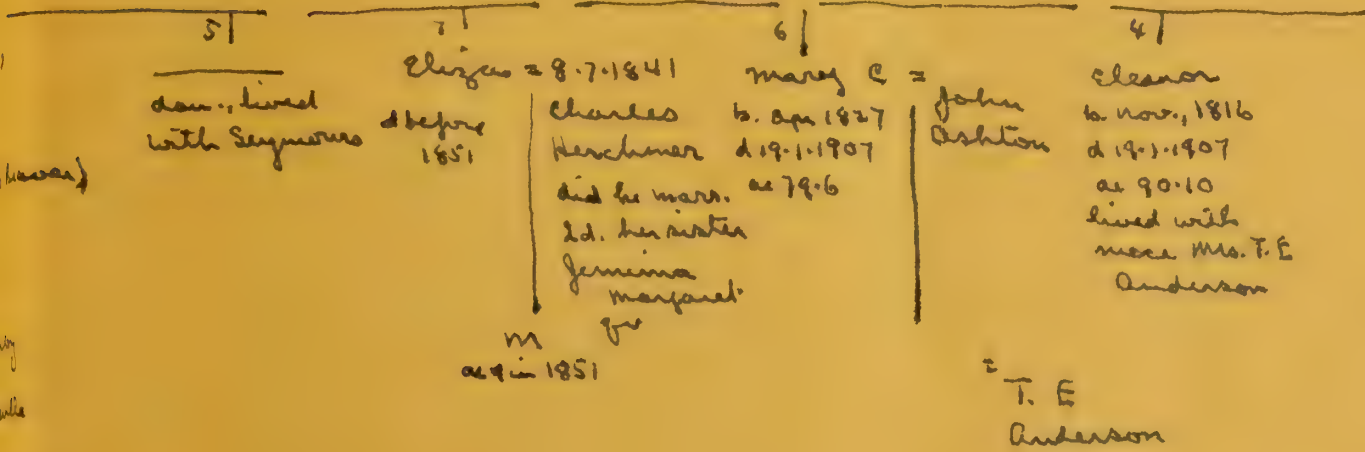 5
dau., lived
with Seymours
7
Eliza = 8.7.1841
d before
1851
Charles
Herchmer
did he marr.
2d. her sister
Jemima
Margaret
qv
M
ae 9 in 1851
6
Mary C =
b. Apr 1827
d 19.1.1907
ae 79.6
John
Ashton
4
Eleanor
b Nov., 1816
d 19.1.1907
ae 90.10
lived with
niece Mrs. T. E
Anderson
= T. E
Anderson